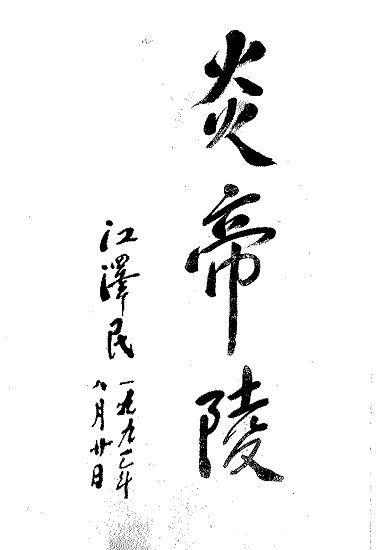 炎帝陵
江澤民
一九九三年
八月廿日